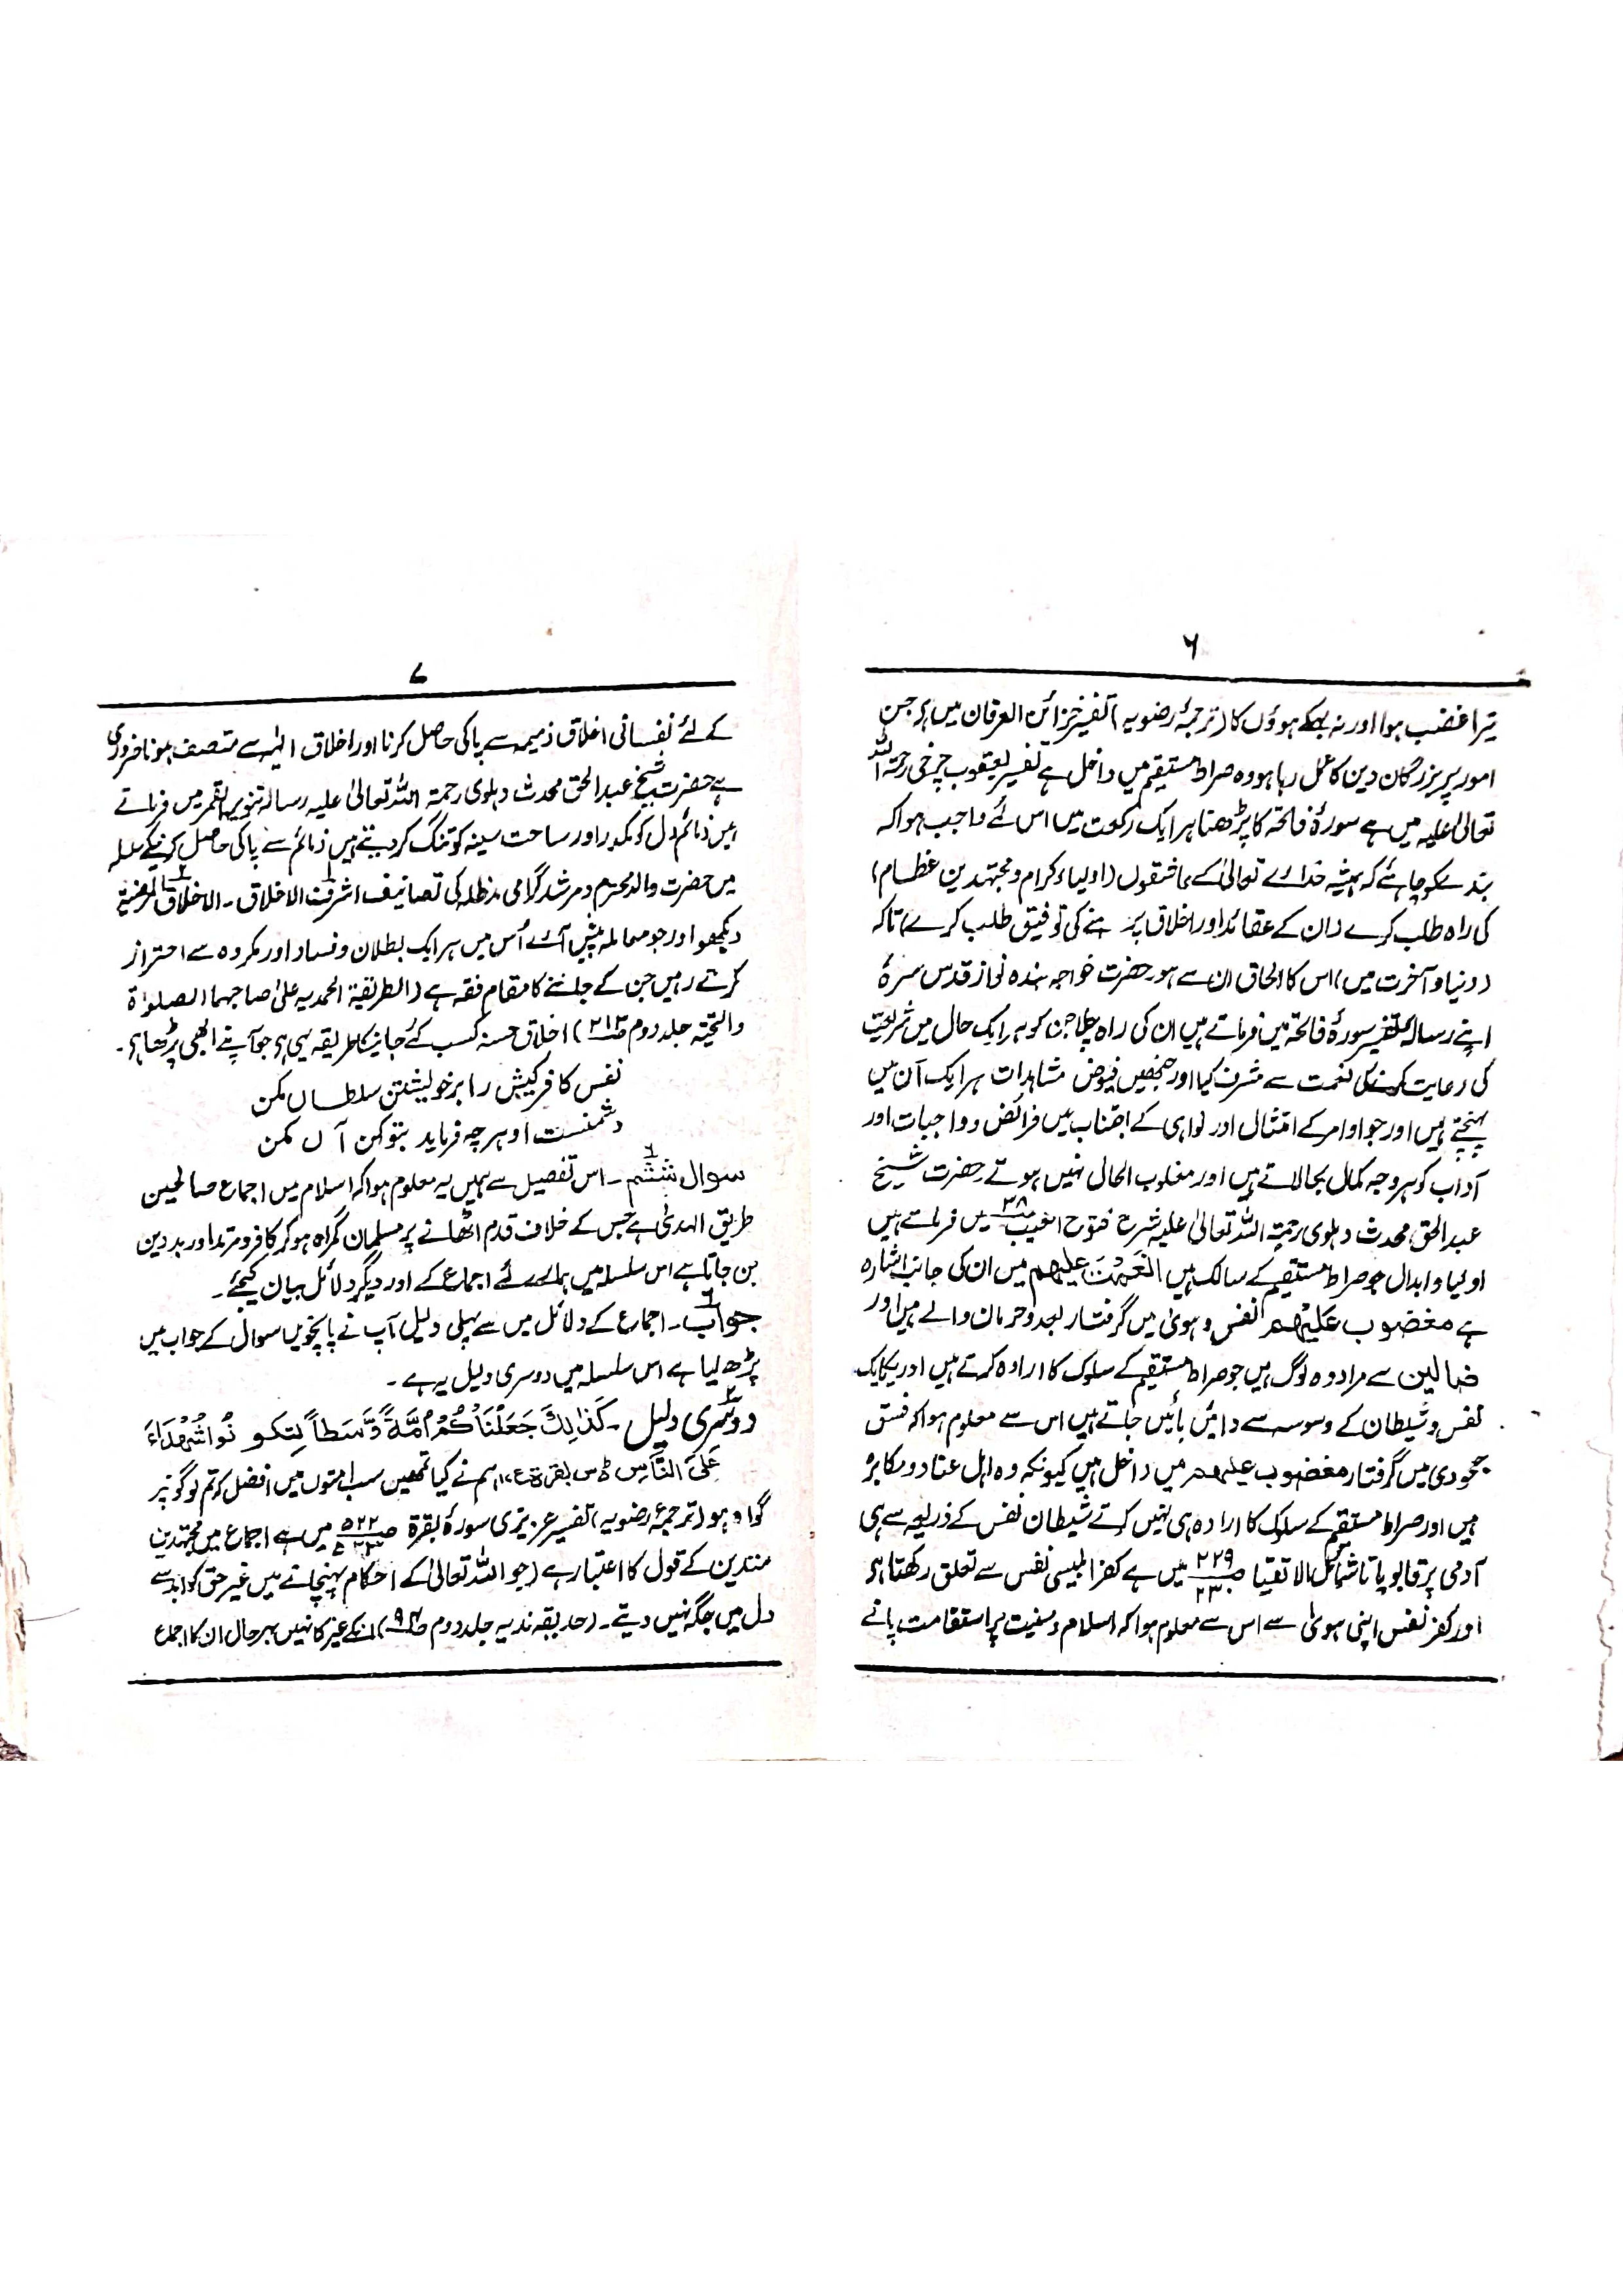 ۶
تیرا غضب ہوا اور نہ بہکے ہوؤں کا (ترجمۂ رضویہ) تفسیر خزائن العرفان میں ہے جن
امور پر بزرگان دین کا عمل رہا ہو وہ صراط مستقیم میں داخل ہے تفسیر یعقوب چرخی رحمۃ اللہ
تعالیٰ علیہ میں ہے سورۂ فاتحہ کا پڑھنا ہر ایک رکعت میں اس لئے واجب ہوا کہ
بندے کو چاہئے کہ ہمیشہ خدائے تعالیٰ کے عاشقوں (اولیاء کرام و مجتہدین عظام)
کی راہ طلب کرے (ان کے عقائد اور اخلاق پر ہنے کی توفیق طلب کرے) تاکہ
(دنیا و آخرت میں) اس کا الحاق ان سے ہو حضرت خواجہ بندہ نواز قدس سرہٗ
اپنے رسالہ تفسیر سورۂ فاتحہ میں فرماتے ہیں ان کی راہ چلا جن کو ہر ایک حال میں شریعت
کی رعایت کرنے کی نعمت سے مشرف کیا اور جنھیں فیوض مشاہدات ہر ایک آن میں
پہنچتے ہیں اور جو اوامر کے امتثال اور نواہی کے اجتناب میں فرائض و واجبات اور
آداب کو ہر وجہ کمال بجا لاتے ہیں اور مغلوب الحال نہیں ہوتے حضرت شیخ
عبدالحق محدث دہلوی رحمۃ اللہ تعالیٰ علیہ شرح فتوح الغیب ۳۸ میں فرماتے ہیں
اولیا و ابدال جو صراط مستقیم کے سالک ہیں انعمت علیہم میں ان کی جانب اشارہ
ہے مغضوب علیہم نفس و ہویٰ میں گرفتار بعد و حرمان والے ہیں اور
ضالین سے مراد وہ لوگ ہیں جو صراط مستقیم کے سلوک کا ارادہ کرتے ہیں اور یکایک
نفس و شیطان کے وسوسہ سے دائیں بائیں جاتے ہیں اس سے معلوم ہوا کہ فسق
جحودی میں گرفتار مغضوب علیہم میں داخل ہیں کیونکہ وہ اہل عناد و مکابرہ
ہیں اور صراط مستقیم کے سلوک کا ارادہ ہی نہیں کرتے شیطان نفس کے ذریعہ سے ہی
آدمی پر قابو پاتا شمائل الاتقیا ص ۲۲۹ ۲۳۰ میں ہے کفر ابلیسی نفس سے تعلق رکھتا ہے
اور کفر نفس اپنی ہویٰ سے اس سے معلوم ہوا کہ اسلام و سنیت پر استقامت پانے
۷
کے لئے نفسانی اخلاق ذمیمہ سے پاکی حاصل کرنا اور اخلاق الٰہیہ سے متصف ہونا ضروری
ہے حضرت شیخ عبدالحق محدث دہلوی رحمۃ اللہ تعالیٰ علیہ رسالہ تنویر القمر میں فرماتے
ہیں ذمائم دل کو مکدر اور ساحت سینہ کو تنگ کر دیتے ہیں ذمائم سے پاکی حاصل کرنیکے سلسلہ
میں حضرت والد محترم و مرشد گرامی مدظلہ کی تصانیف اشرف الاخلاق ۔ الاخلاق المرضیۃ
دیکھو اور جو معاملہ پیش آئے اُس میں ہر ایک بطلان و فساد اور مکروہ سے احتراز
کرتے رہیں جن کے جاننے کا مقام فقہ ہے (الطریقۃ المحمدیہ علیٰ صاحبہا الصلوٰۃ
والتحیۃ جلد دوم ص۲۱۳) اخلاق حسنہ کسب کئے جانیکا طریقہ یہی ہے جو آپنے ابھی پڑھا ہے۔
نفس کافر کیش را بر خویشتن سلطاں مکن
دشمنست او ہر چہ فرماید بتو کن آں مکن
سوال ششم ۶ ۔ اس تفصیل سے ہمیں یہ معلوم ہوا کہ اسلام میں اجماع صالحین
طریق الہدیٰ ہے جس کے خلاف قدم اٹھانے پر مسلمان گمراہ ہو کر کافر و مرتد اور بددین
بن جاتا ہے اس سلسلہ میں ہمارے لئے اجماع کے اور دیگر دلائل بیان کیجئے۔
جواب ۶ ۔ اجماع کے دلائل میں سے پہلی دلیل آپ نے پانچویں سوال کے جواب میں
پڑھ لیا ہے اس سلسلہ میں دوسری دلیل یہ ہے ۔
دوسری دلیل ۔ کَذٰلِکَ جَعَلْنَاکُمْ اُمَّۃً وَّسَطاً لِتکونُوا شُہَدَاءَ
عَلَی النَّاسِ (س بقرۃ ع ۱۷) ہم نے کیا تمھیں سب امتوں میں افضل کہ تم لوگوں پر
گواہ ہو (ترجمۂ رضویہ) تفسیر عزیزی سورۂ بقرۃ ص ۵۲۲ میں ہے اجماع میں مجتہدین
متدین کے قول کا اعتبار ہے (جو اللہ تعالیٰ کے احکام پہنچاتے ہیں غیر حق کو اپنے
دل میں جگہ نہیں دیتے ۔ (حدیقہ ندیہ جلد دوم ص۹۴) انکے غیر کا نہیں بہر حال ان کا اجماع